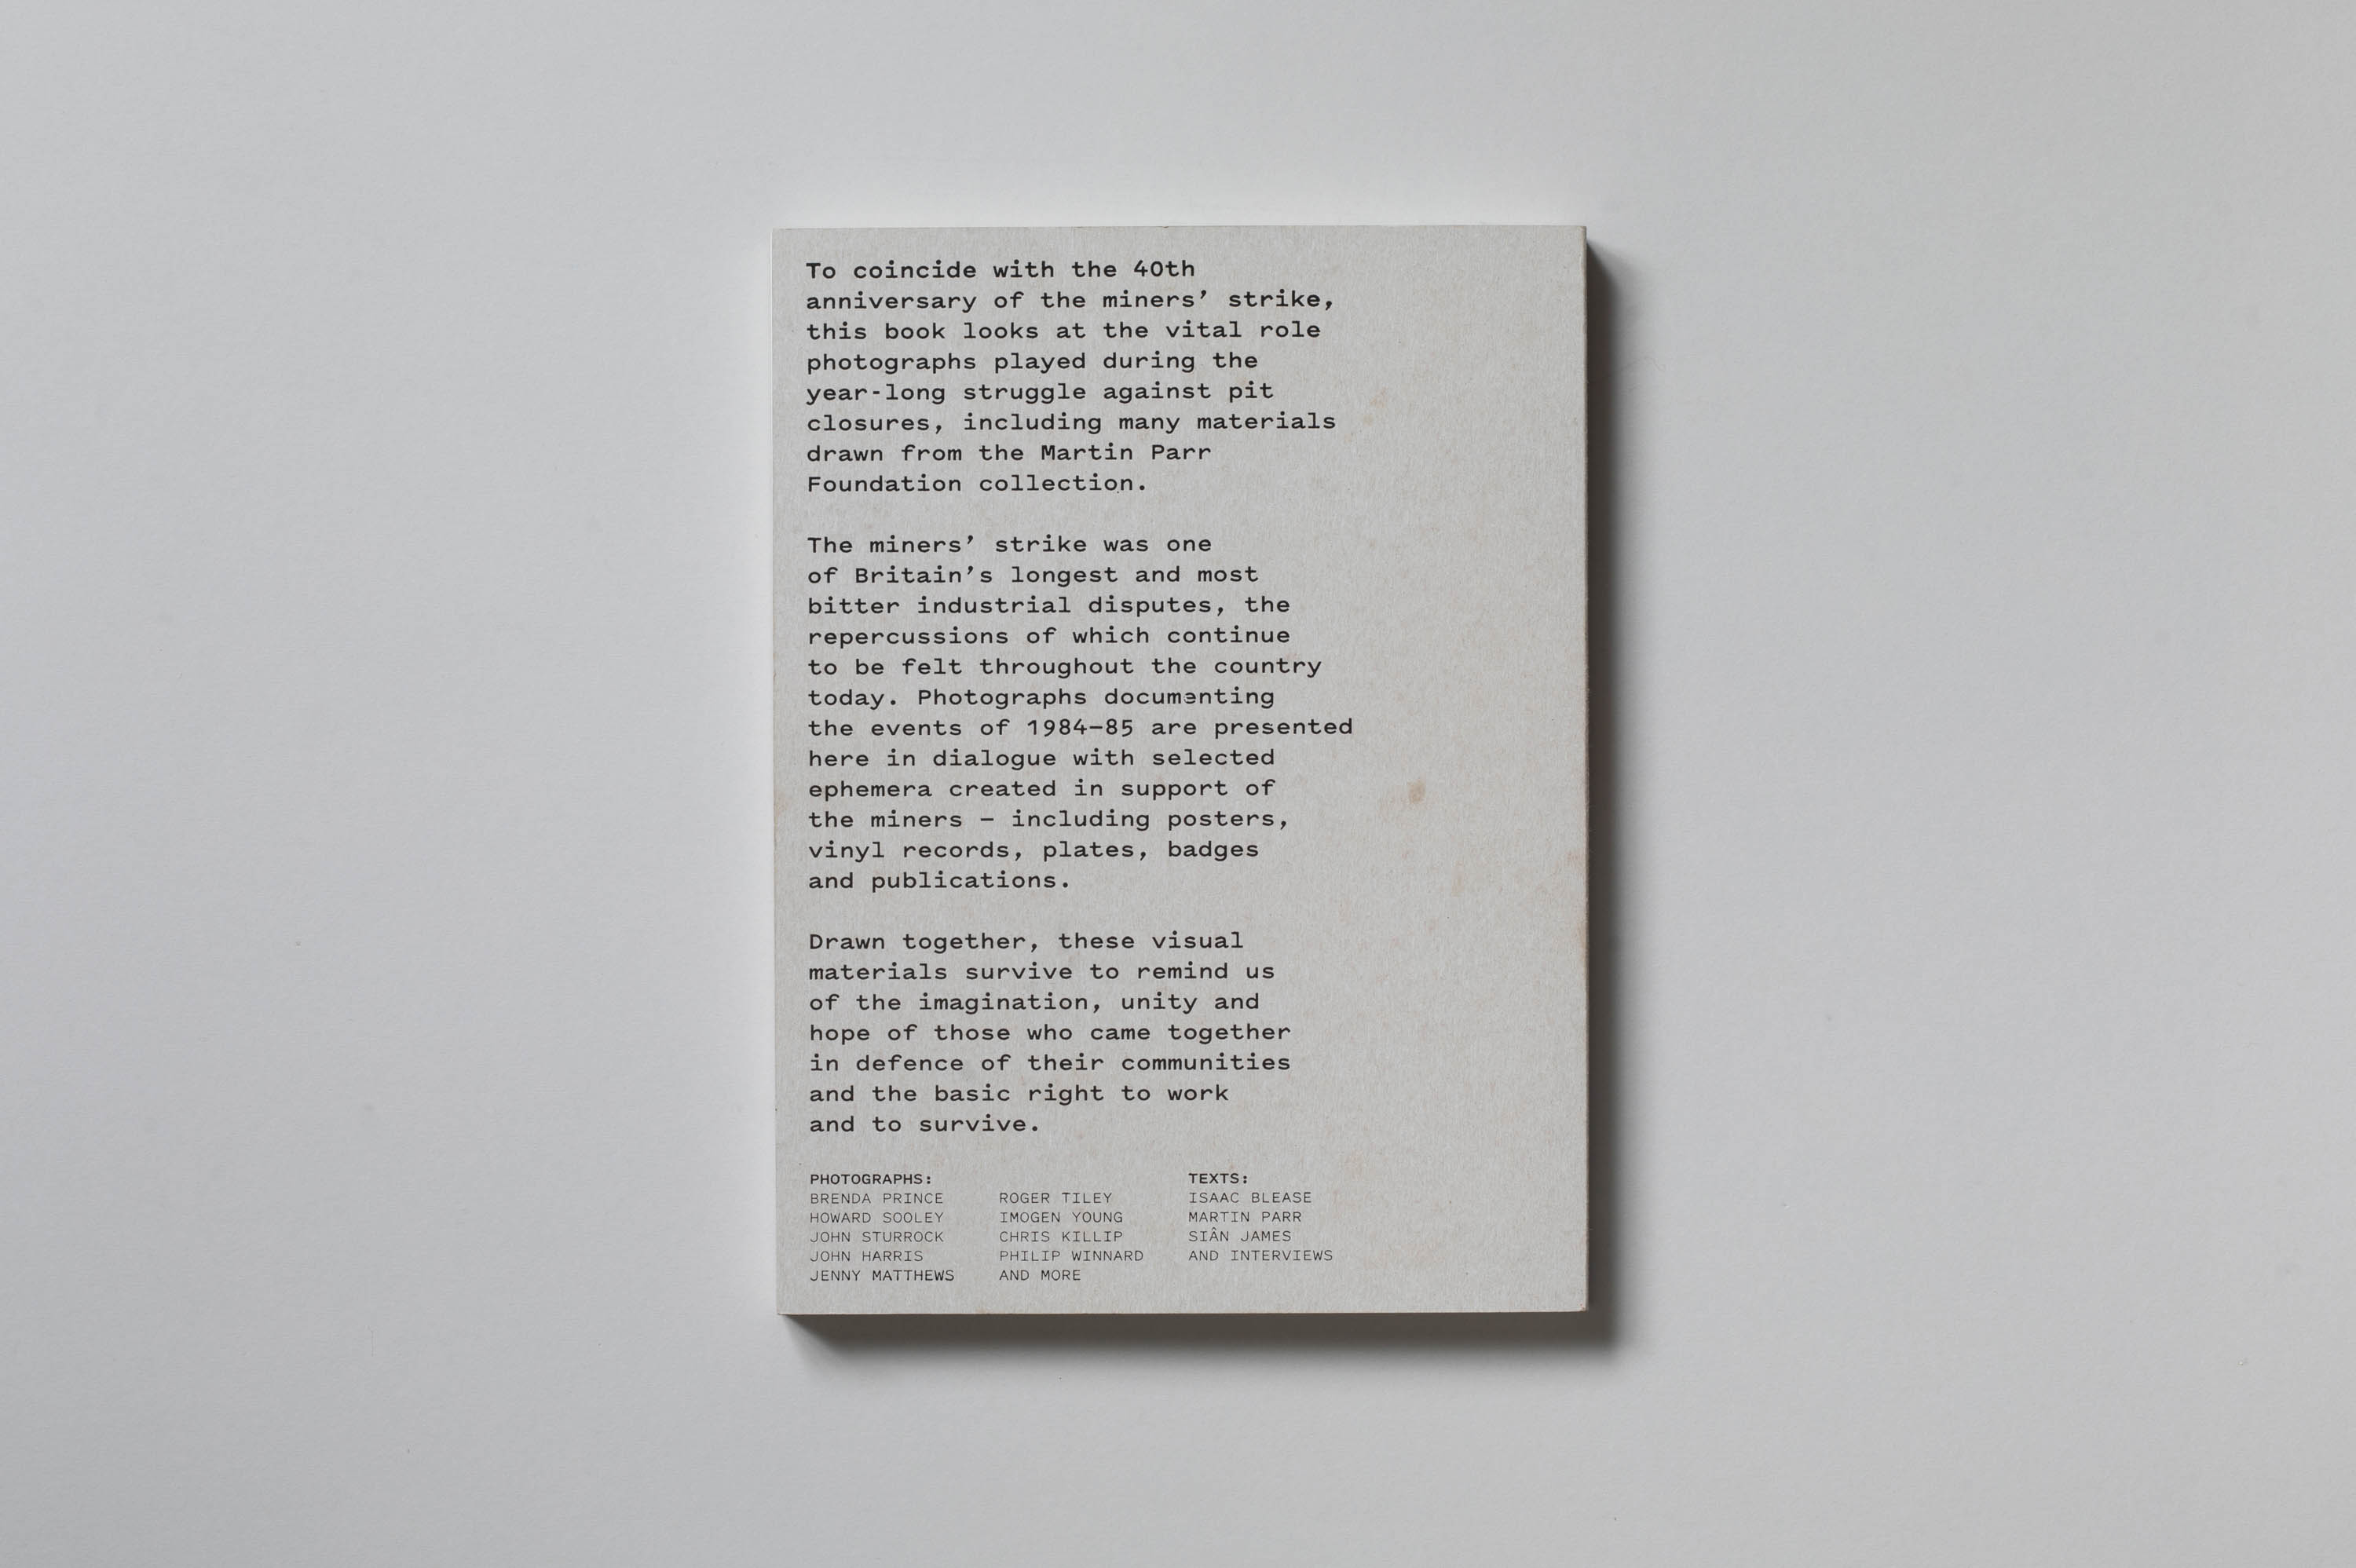 To coincide with the 40th
anniversary of the miners’ strike,
this book looks at the vital role
photographs played during the
year-long struggle against pit
closures, including many materials
drawn from the Martin Parr
Foundation collection.
The miners’ strike was one
of Britain’s longest and most
bitter industrial disputes, the
repercussions of which continue
to be felt throughout the country
today. Photographs documenting
the events of 1984–85 are presented
here in dialogue with selected
ephemera created in support of
the miners – including posters,
vinyl records, plates, badges
and publications.
Drawn together, these visual
materials survive to remind us
of the imagination, unity and
hope of those who came together
in defence of their communities
and the basic right to work
and to survive.
PHOTOGRAPHS:
BRENDA PRINCE
HOWARD SOOLEY
JOHN STURROCK
JOHN HARRIS
JENNY MATTHEWS
ROGER TILEY
IMOGEN YOUNG
CHRIS KILLIP
PHILIP WINNARD
AND MORE
TEXTS:
ISAAC BLEASE
MARTIN PARR
SIÂN JAMES
AND INTERVIEWS